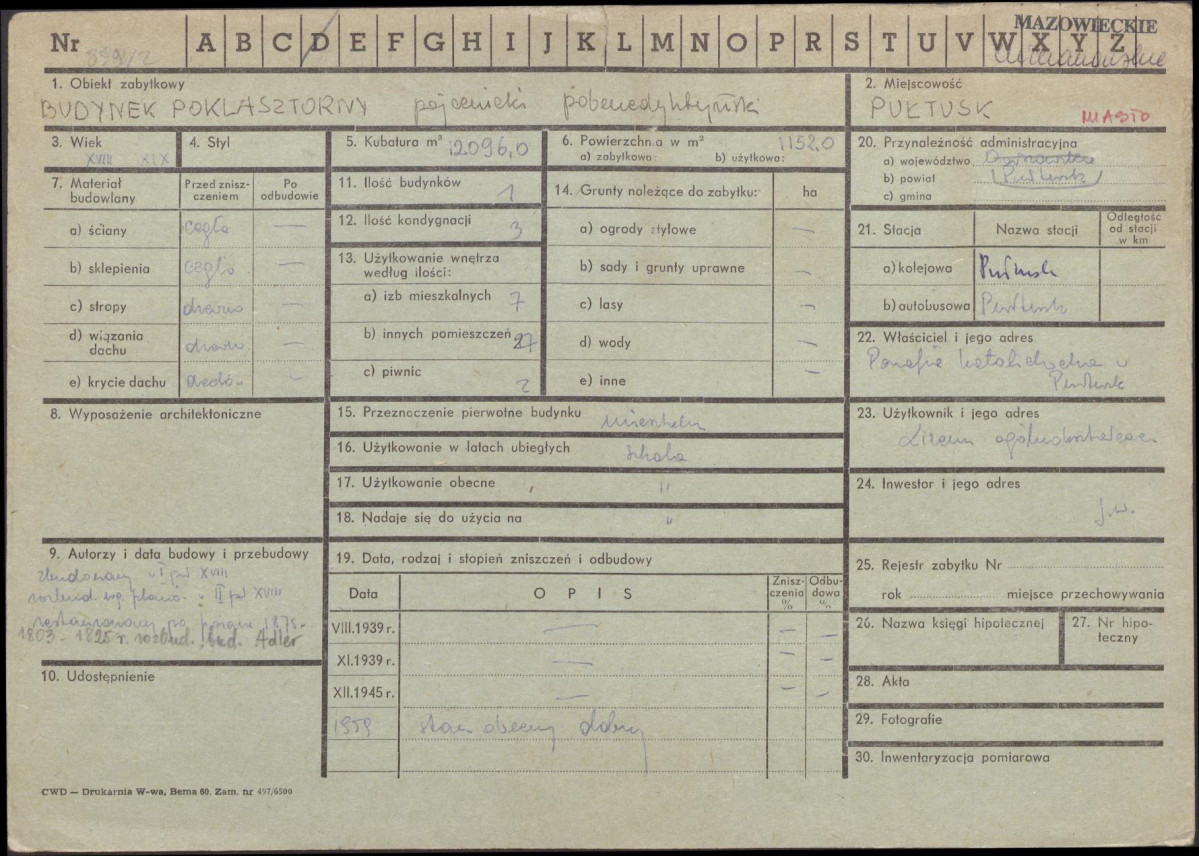 MAZOWIECKIE
Nr A B C D E F G H I J K L M N O P R S T U V W X Y Z
1. Obiekt zabytkowy
BUDYNEK POKLASZTORNY pojezuicki pobenedyktyński
2. Miejscowość
PUŁTUSK MIASTO
3. Wiek
XVIII XIX
4. Styl
5. Kubatura m³ 12096,0
6. Powierzchn.a w m² 1152,0
a) zabytkowa: b) użytkowa:
7. Materiał budowlany
Przed zniszczeniem
Po odbudowie
a) ściany cegła —
b) sklepienia cegła —
c) stropy drewno —
d) wiązania dachu drewn. —
e) krycie dachu —
8. Wyposażenie architektoniczne
9. Autorzy i data budowy i przebudowy
zbudowany w I poł XVIII
w II poł XVIII
restaurowany po pożarze 1875.
1803 - 1825 r. rozbud. bud. Adler
10. Udostępnienie
11. Ilość budynków 1
12. Ilość kondygnacji 3
13. Użytkowanie wnętrza według ilości:
a) izb mieszkalnych 7
b) innych pomieszczeń 27
c) piwnic 2
14. Grunty należące do zabytku: ha
a) ogrody stylowe —
b) sady i grunty uprawne —
c) lasy —
d) wody —
e) inne —
15. Przeznaczenie pierwotne budynku
16. Użytkowanie w latach ubiegłych szkoła
17. Użytkowanie obecne "
18. Nadaje się do użycia na "
19. Data, rodzaj i stopień zniszczeń i odbudowy
Data OPIS Zniszczenia % Odbudowa %
VIII.1939 r. — — —
XI.1939 r. — — —
XII.1945 r. — — —
1959 stan obecny dobry
20. Przynależność administracyjna
a) województwo
b) powiat Pułtusk
c) gmina
21. Stacja Nazwa stacji Odległość od stacji w km
a) kolejowa Pułtusk
b) autobusowa Pułtusk
22. Właściciel i jego adres
Parafia katolicka w
Pułtusk
23. Użytkownik i jego adres
Liceum ogólnokształcące
24. Inwestor i jego adres
j.w.
25. Rejestr zabytku Nr
rok miejsce przechowywania
26. Nazwa księgi hipotecznej
27. Nr hipoteczny
28. Akta
29. Fotografie
30. Inwentaryzacja pomiarowa
CWD — Drukarnia W-wa, Bema 60. Zam. nr 497/6500